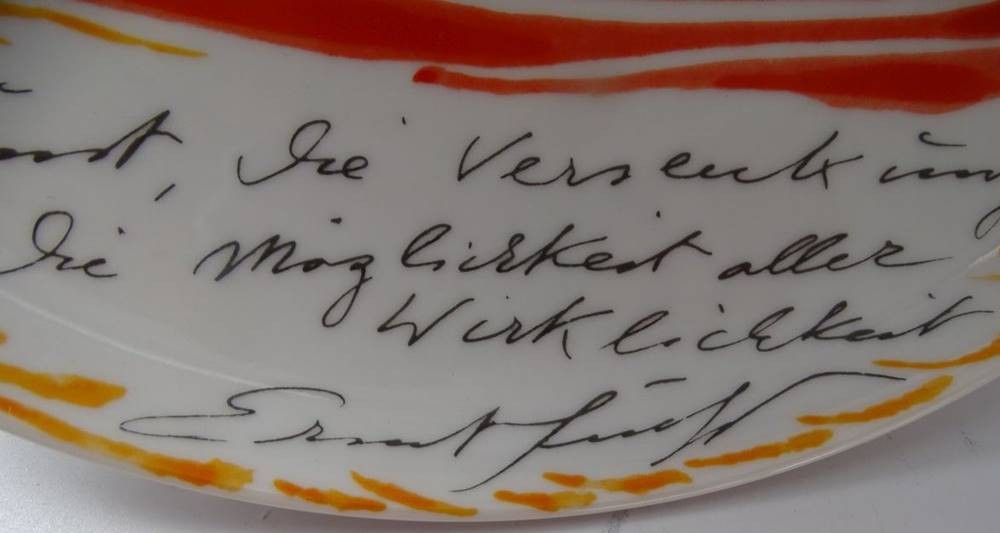 die Versenkung
die Möglichkeit aller
Wirklichkeit
Ernst Fuchs